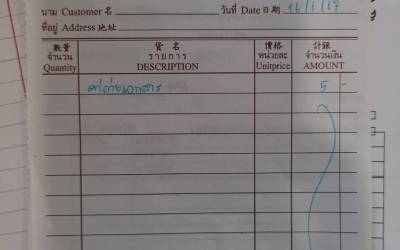 นาม Customer 名 วันที่ Date 日期 16/1/17
ที่อยู่ Address 地址
數量 貨名 價格 計銀
จำนวน รายการ หน่วยละ จำนวนเงิน
Quantity DESCRIPTION Unitprice AMOUNT
ค่าถ่ายเอกสาร 5 -